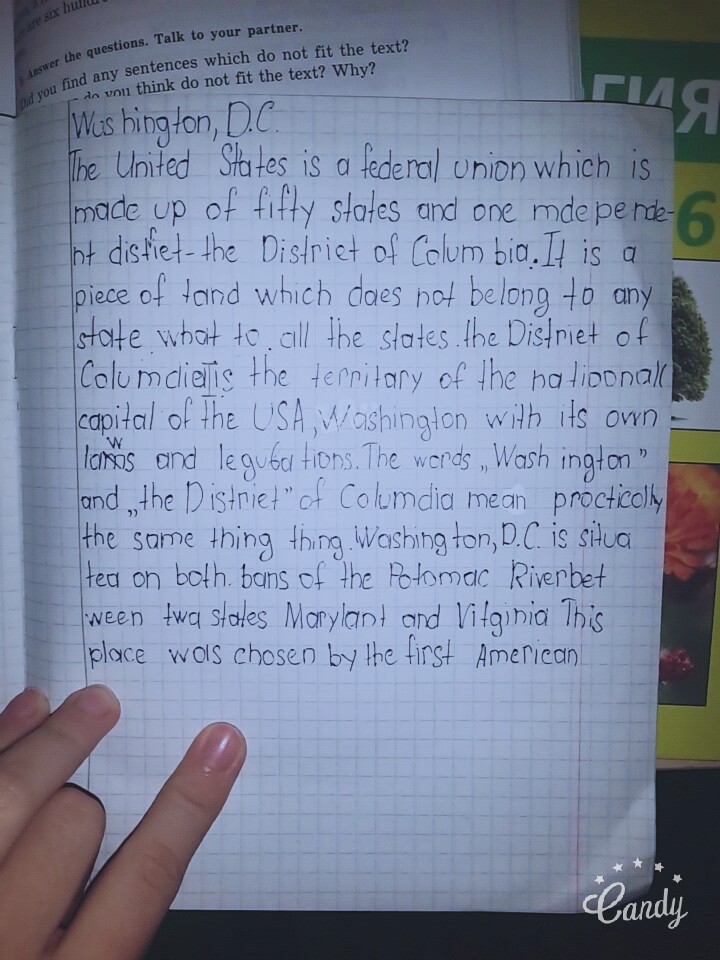 are six hundre
Answer the questions. Talk to your partner.
Did you find any sentences which do not fit the text?
do you think do not fit the text? Why?
ГИЯ
6
Washington, D.C.
The United States is a federal union which is
made up of fifty states and one mdepende-
nt distiet-the District of Colum bia. It is a
piece of tand which daes not belong to any
state what to. all the states. the Distriet of
Columdia is the territary of the natioonall
capital of the USA, Washington with its own
laws and legubations. The words „Wash ington"
and „the Distriet" of Columdia mean proctically
the same thing thing. Washington, D.C. is situa
tea on both. bans of the Potomac Riverbet
ween twa states Marylant and Vitginia This
place wals chosen by the first American
Candy